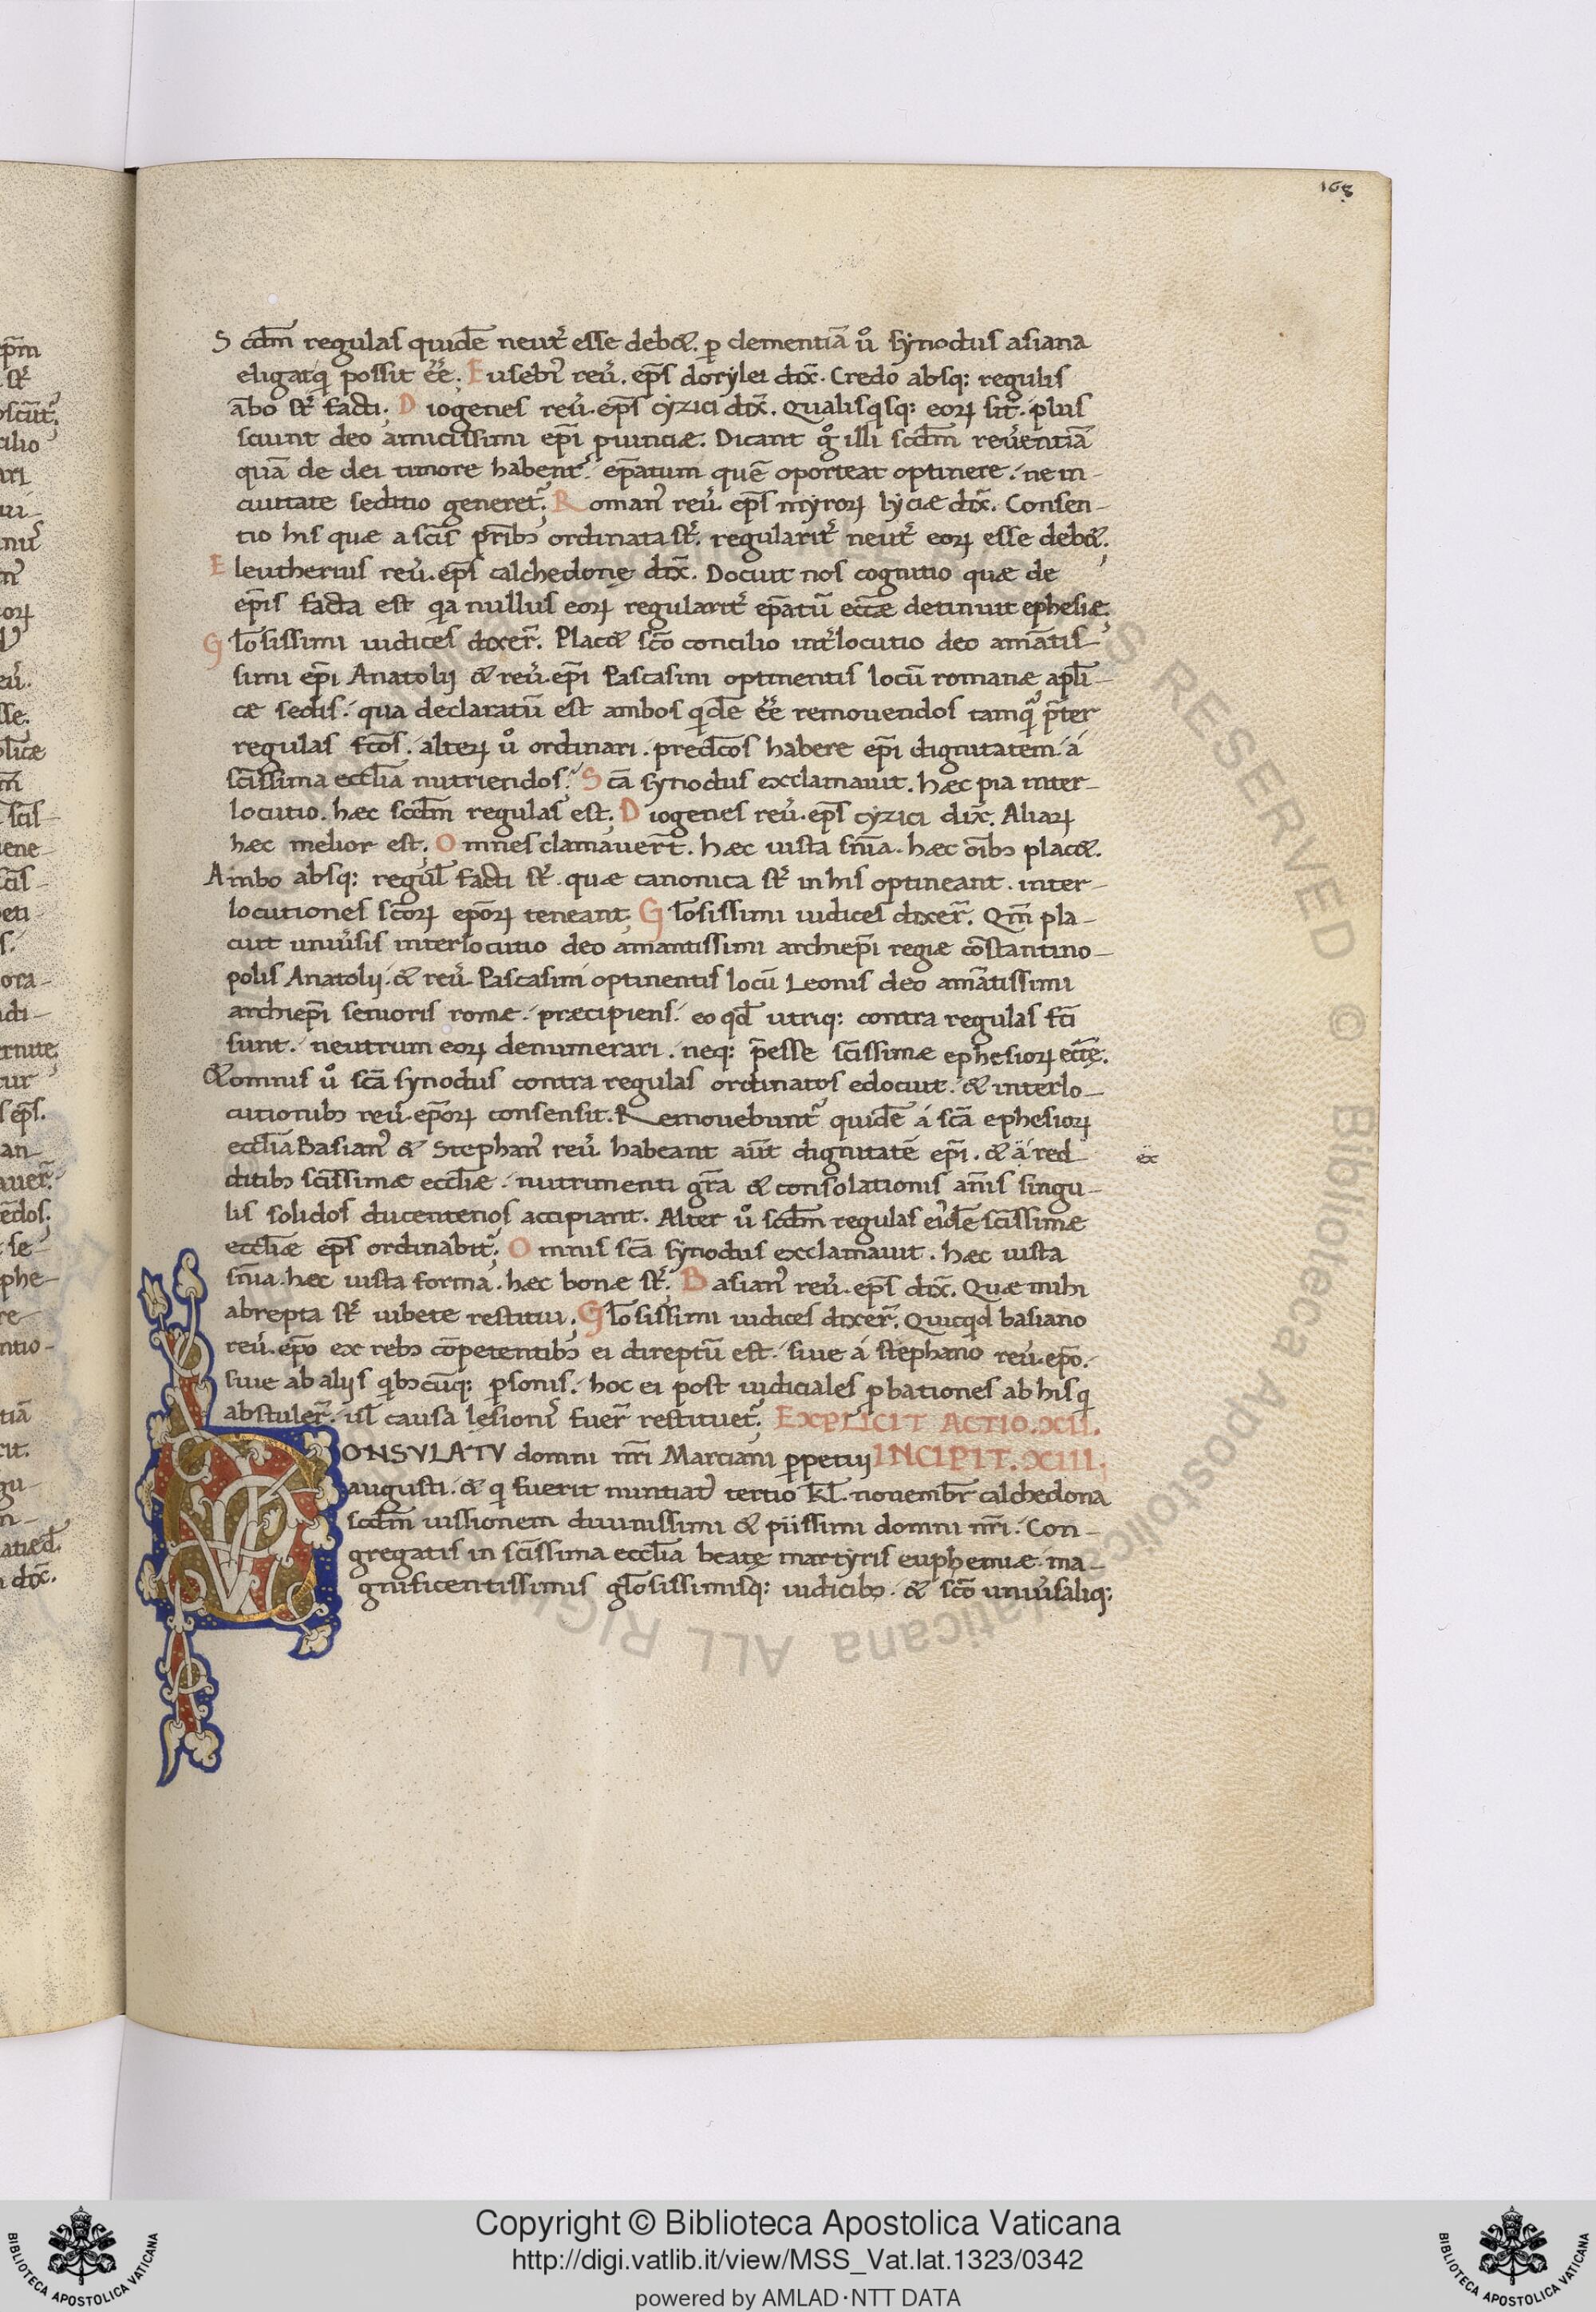 168
Scdm̄ regulas quidē neut᷑ esse deb&. ꝑ clementiā ů synodus asiana
eligat qͥ possit ēē. Eusebiꝰ reu̓. ep̄s dorylei dix̄. Credo absq: regulis
ābo st᷑ facti. Diogenes reu̓. ep̄s cyzici dix̄. Qualisqsq: eoꝝ sit. plus
sciunt deo amicissimi ep̄i ꝓuinciæ. Dicant g̊ illi scdm̄ reu̓entiā
quā de dei timore habent᷑. ep̄atum quē oporteat optinere. ne in-
ciuitate seditio generet᷑. Romanꝰ reu̓. ep̄s myroꝝ lyciæ dix̄. Consen-
tio his quæ a sc̄is pr̄ibꝫ ordinata st᷑. regularit᷑ neut᷑ eoꝝ esse deb&.
Eleutherius reu̓. ep̄s calchedonę dix̄. Docuit nos cognitio quæ de
ep̄is facta est qa nullus eoꝝ regularit᷑ ep̄atū eccłæ detinuit ephesiæ.
Głosissimi iudices dixer̄. Plac& sc̄o concilio int᷑locutio deo amātis-
simi ep̄i Anatolij & reu̓. ep̄i Pascasini optinentis locū romanæ apłi-
cæ sedis. qua declaratū est ambos qͥdē ēē remouendos tamqͣ p̄ter
regulas fc̄os. alteꝝ ů ordinari. predc̄os habere ep̄i dignitatem. á
sc̄issima eccłia nutriendos. Sc̄a synodus exclamauit. hæc pia inter-
locutio. hæc scdm̄ regulas est. Diogenes reu̓. ep̄s cyzici dix̄. Aliaꝝ
hæc melior est. Omnes clamauer̄t. hæc iusta sn̄ia. hæc oīibꝫ plac&.
Ambo absq: reguł facti st᷑. quæ canonica st᷑ in his optineant. inter-
locutiones sc̄oꝝ ep̄oꝝ teneant. Głosissimi iudices dixer̄. Qm̄ pla-
cuit uniu̓sis interlocutio deo amantissimi archiep̄i regiæ cōstantino-
polis Anatolij. & reu̓. Pascasini optinentis locū Leonis deo amātissimi
archiep̄i senioris romæ. præcipiens. eo qđ utriq: contra regulas fc̄i
sunt. neutrum eoꝝ denumerari. neq: p̄esse sc̄issimæ ephesioꝝ eccłę.
&omnis ů sc̄a synodus contra regulas ordinatos edocuit. & interlo-
cutionibꝫ reu̓. ep̄oꝝ consensit. Remouebunt᷑ quidē á sc̄a ephesioꝝ
eccłia Basianꝰ & Stephanꝰ reu̓. habeant aut̄ dignitatē ep̄i. & ä red
ëx
ditibꝫ sc̄issimæ eccłiæ. nutrimenti gr̄a & consolationis an̄is singu-
lis solidos ducentenos accipiant. Alter ů scdm̄ regulas eiꝰdē sc̄issimæ
eccłiæ ep̄s ordinabit᷑. Omnis sc̄a synodus exclamauit. hæc iusta
sn̄ia. hæc iusta forma. hæc bonæ st᷑. Basianꝰ reu̓. ep̄s dix̄. Quæ mihi
abrepta st᷑ iubete restitui. Głosissimi iudices dixer̄. Quicqͥd basiano
reu̓. ep̄o ex rebꝫ cōpetentibꝫ ei direptū est. siue á stephano reu̓. ep̄o.
siue ab alijs qͥbꝫcūq: ꝑsonis. hoc ei post iudiciales ꝓbationes ab his qͥ
abstuler̄. uł causa lęsionꝭ fuer̄ restituet᷑. EXPLICIT ACTIO. XII.
CONSVLATV domni nr̄i Marciani ꝑpetuij INCIPIT. XIII.
augusti. & qͥ fuerit nuntiatꝰ tertio kł. nouembr̄ calchedona
scdm̄ iussionem diuinissimi & piissimi domni nr̄i. Con-
gregatis in sc̄issima eccłia beatę martyris euphemiæ. ma-
gnificentissimis głosissimisq: iudicibꝫ. & sc̄o uniu̓saliq:
Copyright © Biblioteca Apostolica Vaticana
http://digi.vatlib.it/view/MSS_Vat.lat.1323/0342
powered by AMLAD·NTT DATA